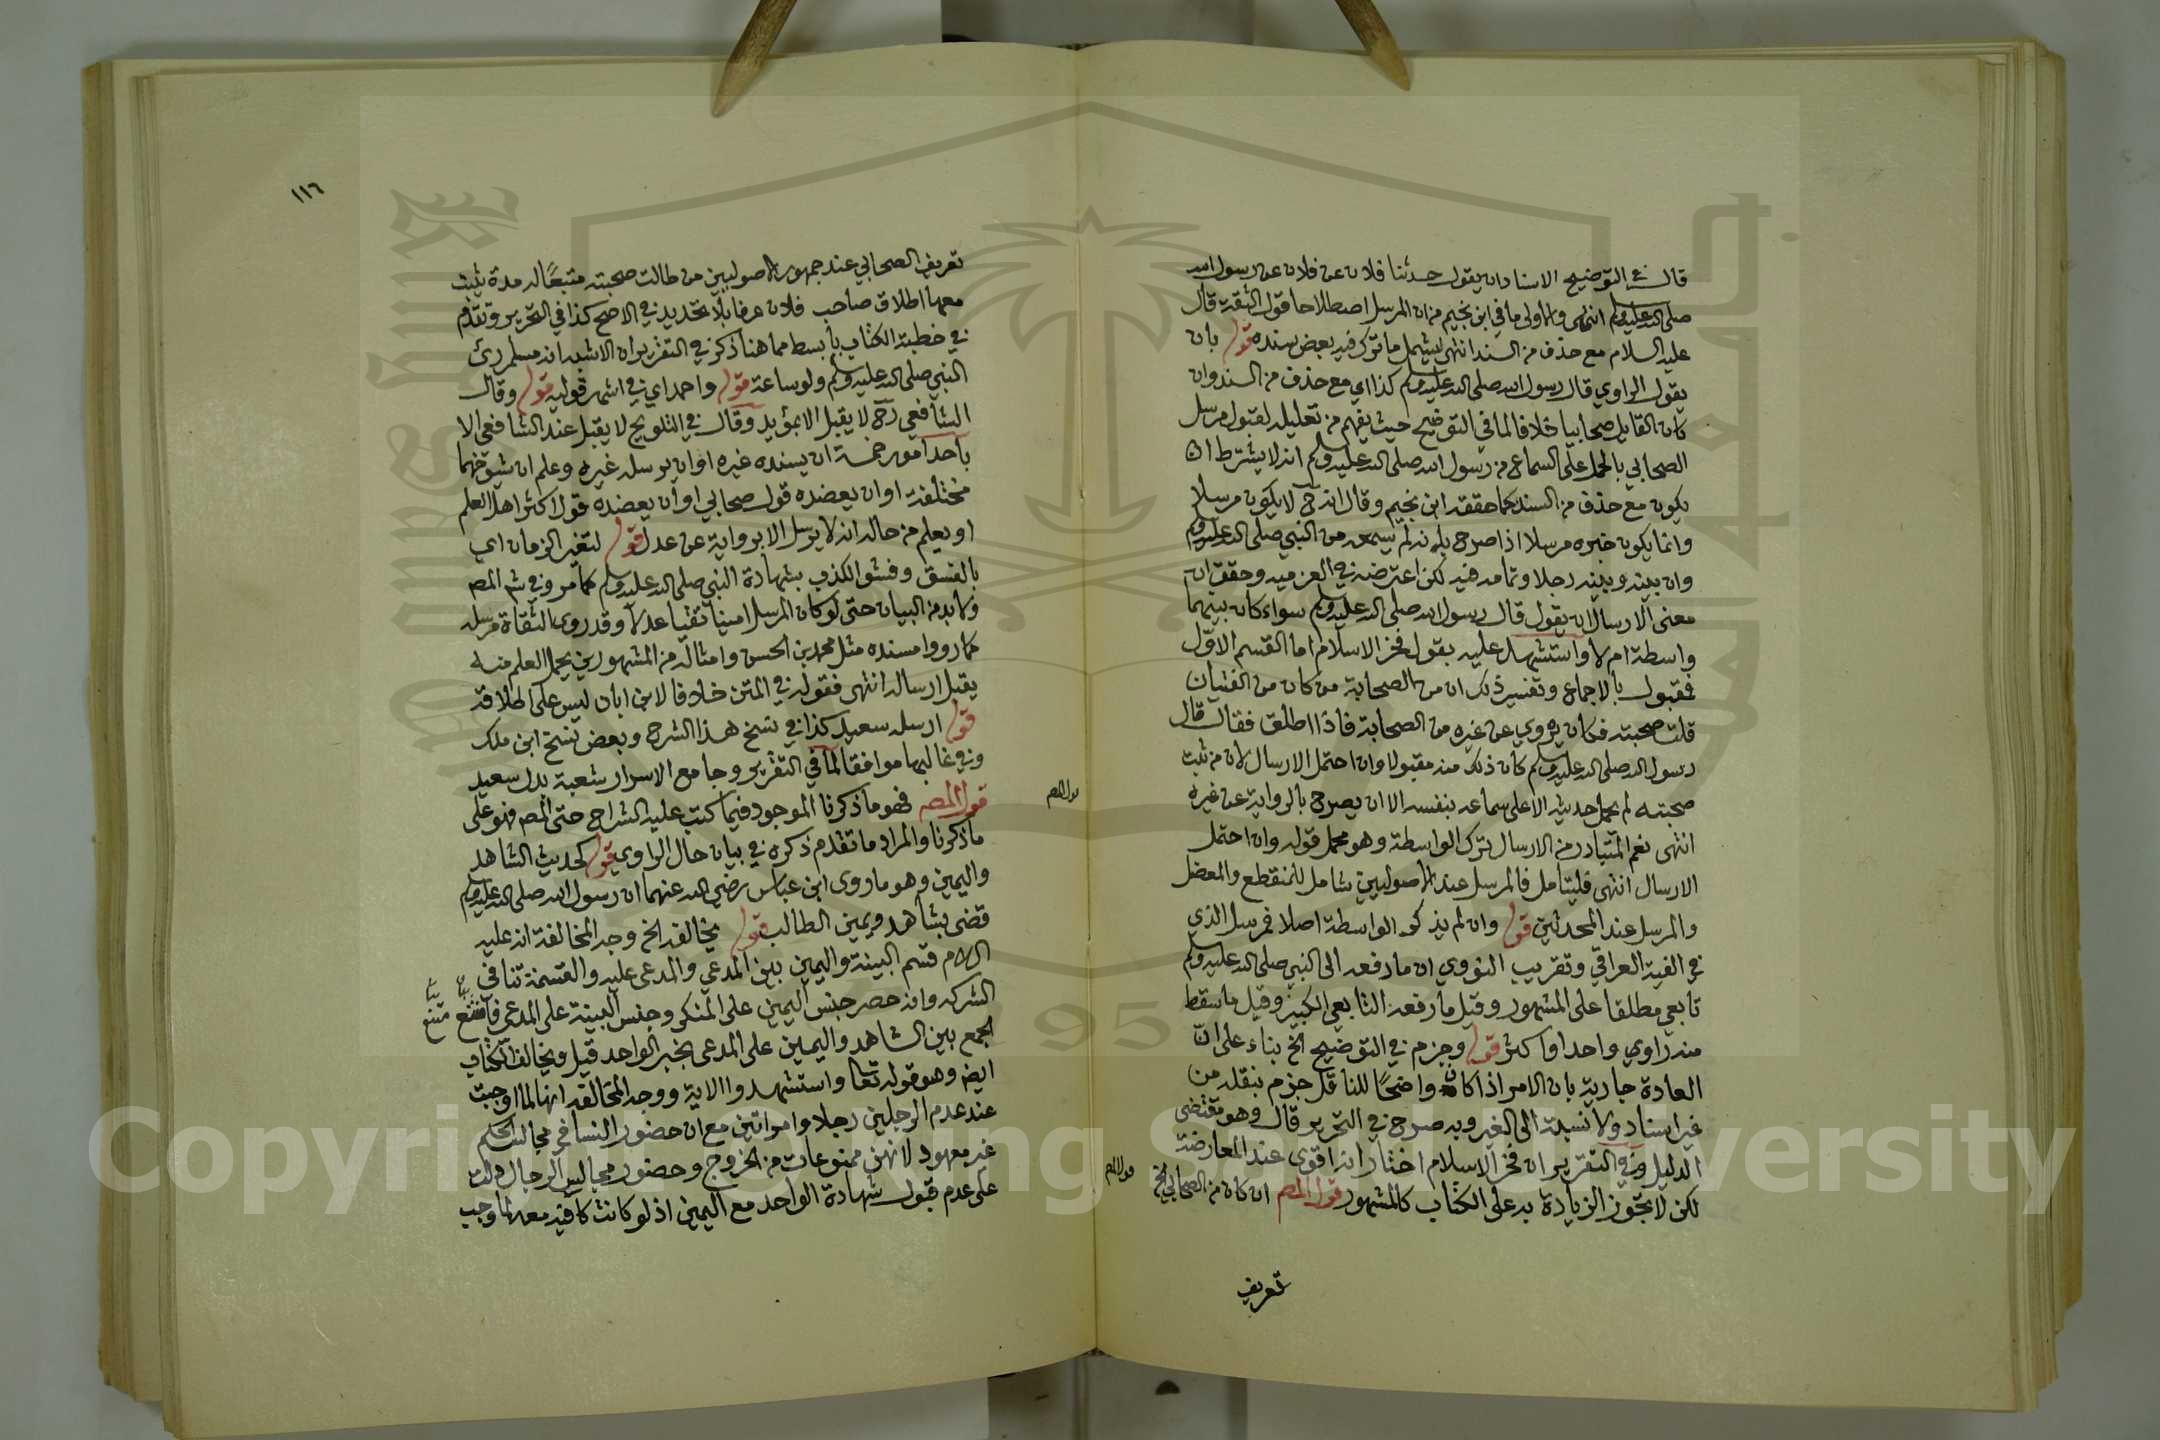 قال في التوضيح الاسناد ان يقول حدثنا فلان عن فلان عن رسول الله
صلى الله عليه وسلم انتهى والاولى ما في ابن نجيم من ان المرسل اصطلاحا قول الثقة قال
عليه السلام مع حذف من السند انتهى ليشمل ما ترك فيه بعض سنده قوله بان
يقول الراوي قال رسول الله صلى الله عليه وسلم كذا اي مع حذف من السند وان
كان القايل صحابيا خلافا لما في التوضيح حيث يفهم من تعليله لقبول مرسل
الصحابي بالحمل على السماع من رسول الله صلى الله عليه وسلم انه لا يشترط ان
يكون مع حذف من السند كما حققه ابن نجيم وقال انه ح لا يكون مرسلا
وانما يكون خبره مرسلا اذا صرح بانه لم يسمعه من النبي صلى الله عليه وسلم
وان بينه وبينه رجلا وتمامه فيه لكن اعترضه في العزمية وحقق ان
معنى الارسال ان يقول قال رسول الله صلى الله عليه وسلم سواء كان بينهما
واسطة ام لا واستشهد عليه بقول فخر الاسلام اما القسم الاول
فمقبول بالاجماع وتفسير ذلك ان من الصحابة من كان من الفتيان
قلت صحبته فكان يروي عن غيره من الصحابة فاذا اطلق فقال قال
رسول الله صلى الله عليه وسلم كان ذلك منه مقبولا وان احتمل الارسال لان من ثبت
صحبته لم يحمل حديثه الا على سماعه بنفسه الا ان يصرح بالرواية عن غيره
انتهى نعم المتبادر من الارسال ترك الواسطة وهو محمل قوله وان احتمل
الارسال انتهى فليتامل فالمرسل عند الاصوليين شامل للمنقطع والمعضل
والمرسل عند المحدثين قوله وان لم يذكر الواسطة اصلا فمرسل الذي
في الفية العراقي وتقريب النووي ان ما رفعه الى النبي صلى الله عليه وسلم
تابعي مطلقا على المشهور وقيل ما رفعه التابعي الكبير وقيل ما سقط
منه راوي واحد او اكثر قوله وجزم في التوضيح الخ بناء على ان
العادة جارية بان الامر اذا كان واضحا للناقل جزم بنقله من
غير اسناد ولا نسبة الى الغير وبه صرح في التحرير قال وهو مقتضى
الدليل وفي التقرير ان فخر الاسلام اختار انه اقوى عند المعارضة
لكن لا تجوز الزيادة به على الكتاب كالمشهور قول المصـ ان كان من الصحابي الخ
تعريف
١١٦
تعريف الصحابي عند جمهور الاصوليين من طالت صحبته متبعا له مدة يثبت
معها اطلاق صاحب فلان عرفا بلا تحديد في الاصح كذا في التحرير وتقدم
في خطبة الكتاب بأبسط مما هنا ذكر في التقرير ان الاشبه انه مسلم رئ
النبي صلى الله عليه وسلم ولو ساعة قوله واحمد اي في اشهر قوليه قوله وقال
الشافعي رح لا يقبل الا بمؤيد وقال في التلويح لا يقبل عند الشافعي الا
بأحد امور خمسة ان يسنده غيره او ان يرسله غيره وعلم ان شيوخهما
مختلفة او ان يعضده قول صحابي او أن يعضده قول اكثر اهل العلم
او يعلم من حاله انه لا يرسل الا بروايه عن عدل قوله لتغير الزمان اي
بالفسق وفشو الكذب بشهادة النبي صلى الله عليه وسلم كما مر وفي شم المصـ
ولا بد من البيان حتى لو كان المرسل امينا تقيا عدلا وقد روى الثقاة مرسله
كما رووا مسنده مثل محمد بن الحسن وامثاله من المشهورين يحمل العلم منه
يقبل ارساله انتهى فقوله في المتن خلافا لابن ابان ليس على اطلاقه
قوله ارسله سعيد كذا في نسخ هذا الشرح وبعض نسخ ابن ملك
وفي غالبها موافقا لما في التقرير وجامع الاسرار شعبة بدل سعيد
قول المصـ فهو ما ذكرنا الموجود فيما كتب عليه الشراح حتى المصـ فهو على
ما ذكرنا والمراد ما تقدم ذكره في بيان حال الراوي قوله كحديث الشاهد
واليمين وهو ما روى ابن عباس رضي الله عنهما ان رسول الله صلى الله عليه وسلم
قضى بشاهد ويمين الطالب قوله يخالفه الخ وجه المخالفة انه عليه
السلام قسم البينة واليمين بين المدعي والمدعى عليه والقسمة تنافي
الشركة وانه حصر جنس اليمين على المنكر وجنس البينة على المدعي فامتنع
الجمع بين الشاهد واليمين على المدعى بخبر الواحد قيل ويخالف الكتاب
ايضا وهو قوله تعا واستشهدوا الاية ووجه المخالفة انها لما اوجبت
عند عدم الرجلين رجلا وامراتين مع ان حضور النسا في مجالس الحكم
غير معهود لانهن ممنوعات من الخروج وحضور مجالس الرجال دلت
على عدم قبول شهادة الواحد مع اليمين اذ لو كانت كافية معه لما وجب
Copyright © King Saud University
1957